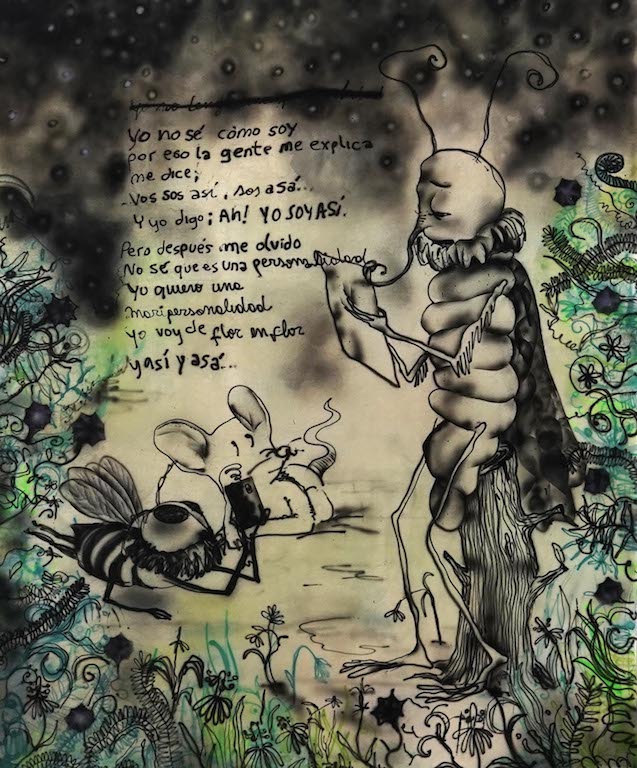 Yo no sé cómo soy
por eso la gente me explica
me dice;
-Vos sos así, sos asá...
Y yo digo; Ah! YO SOY ASÍ.
Pero después me olvido
No sé que es una personalidad
Yo quiero una
maripersonalidad
Yo voy de flor en flor
y así y asá...